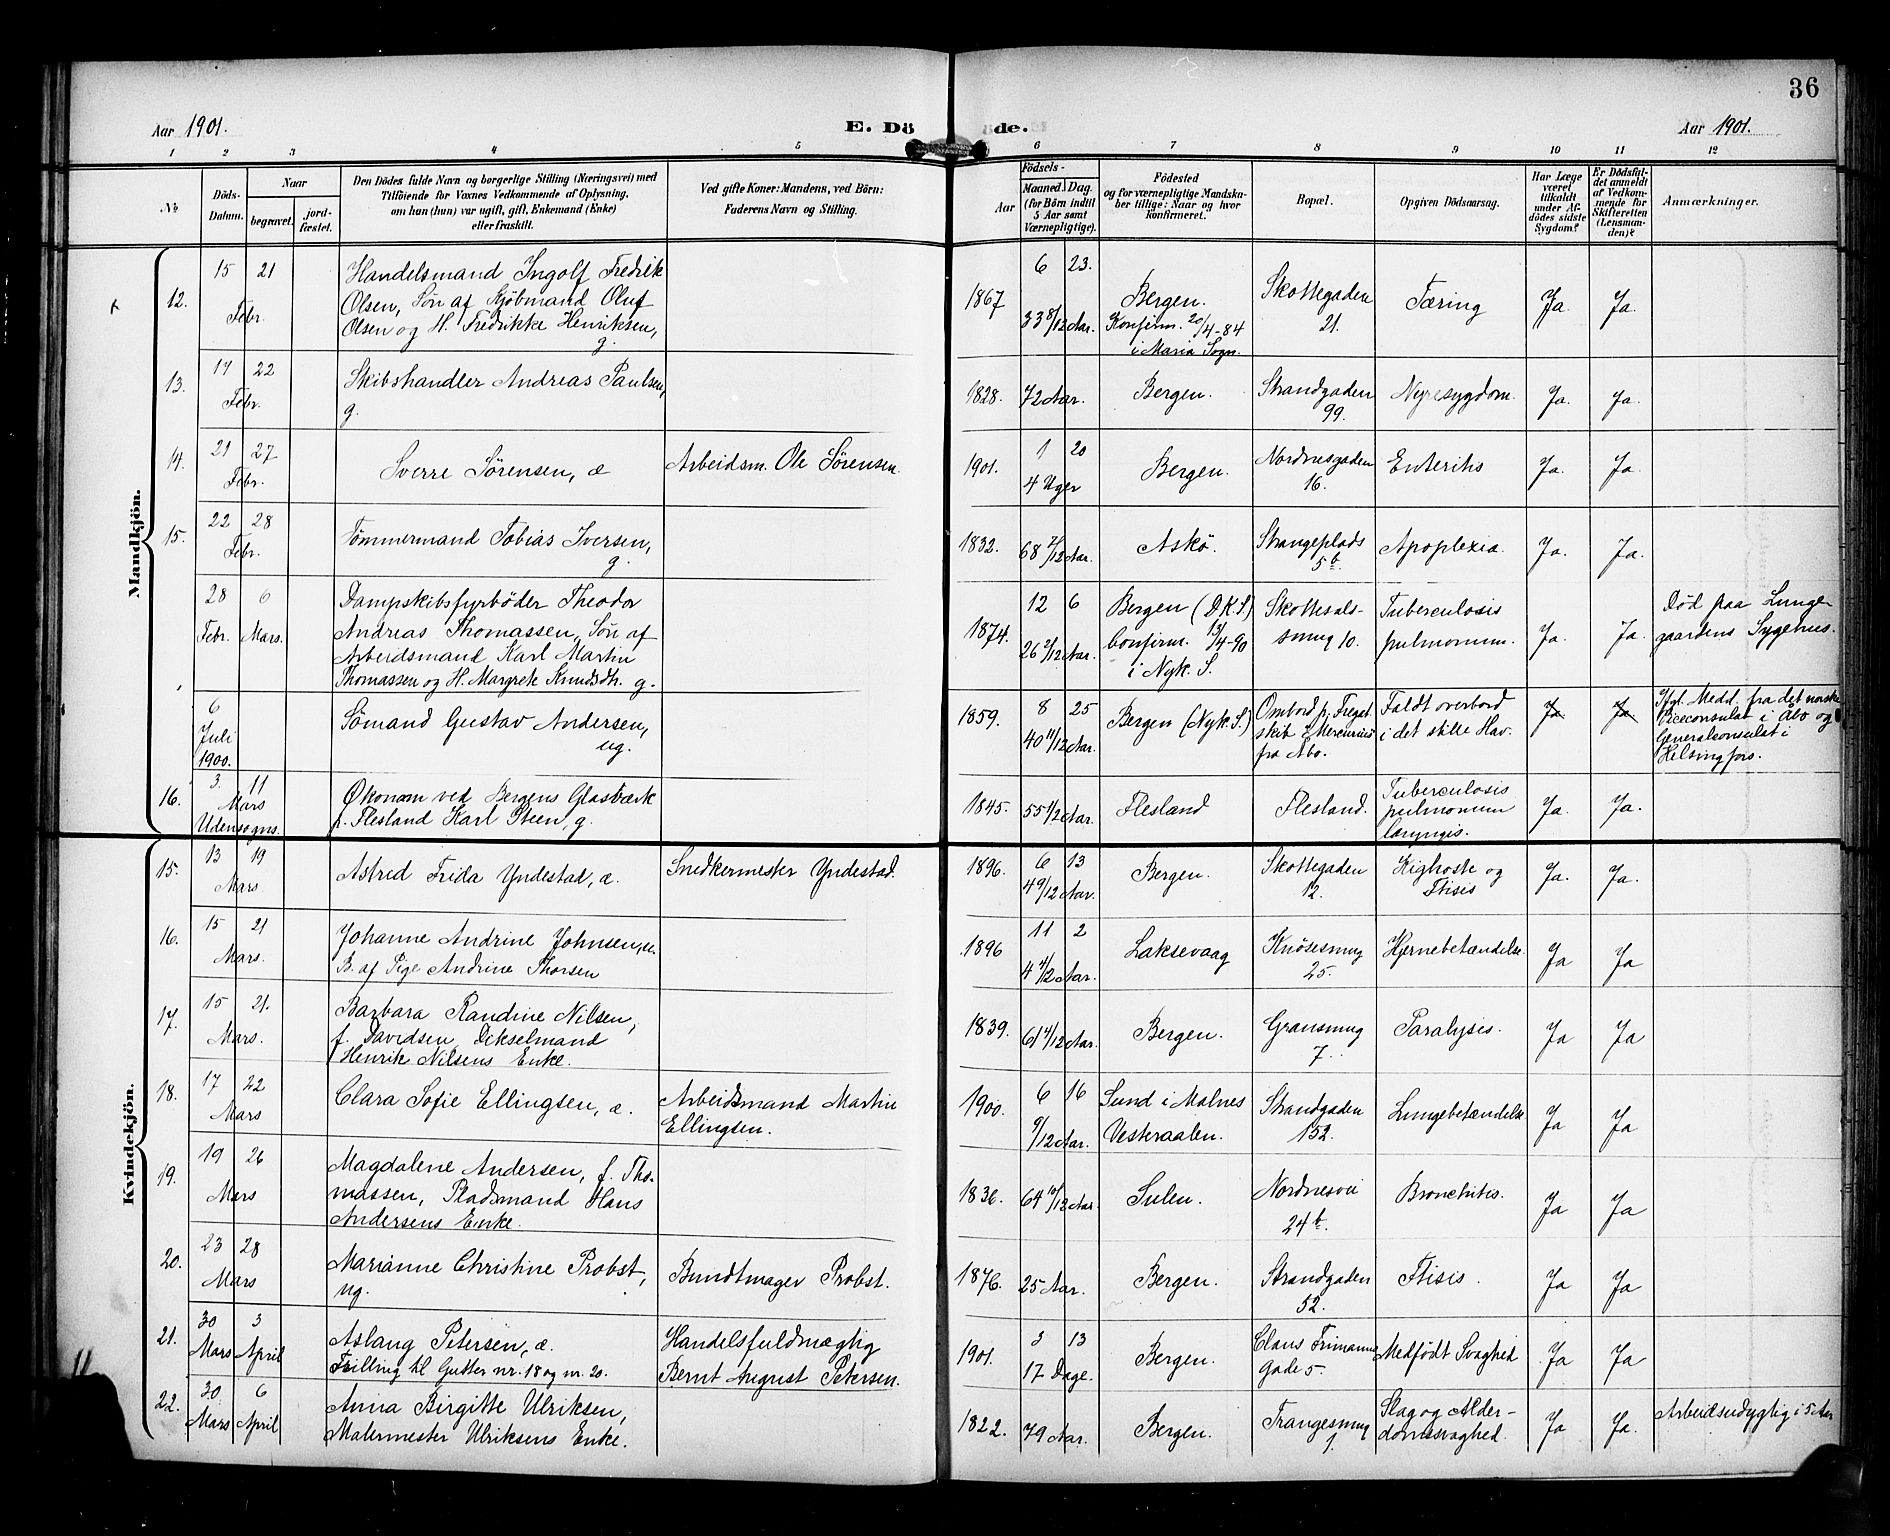 36
Aar 1901.
E. Döde.
Aar 1901.
1 2 3 4 5 6 7 8 9 10 11 12
No.
Döds-Datum.
Naar
begravet.
jordfæstet.
Den Dödes fulde Navn og borgerlige Stilling (Næringsvei) med
Tilföiende for Voxnes Vedkommende af Oplysning,
om han (hun) var ugift, gift, Enkemand (Enke)
eller fraskilt.
Ved gifte Koner: Mandens, ved Börn:
Faderens Navn og Stilling.
Födsels-
Aar
Maaned. Dag.
(for Börn indtil
5 Aar samt
Værnepligtige).
Födested
og for værnepligtige Mandskaber tillige: Naar og hvor
konfirmeret.
Bopæl.
Opgiven Dödsaarsag.
Har Læge
været
tilkaldt
under Afdödes sidste
Sygdom?
Er Dödsfaldet anmeldt
af Vedkommende for
Skifteretten
(Lensmanden)?
Anmærkninger.
Mandkjön.
12. 15 21 Febr.
Handelsmand Ingolf Fredrik
Olsen, Sön af Kjöbmand Oluf
Olsen og H. Fredrikke Henriksen,
g.
1867 6 23. 33 8/12 Aar.
Bergen.
Konfirm. 20/4-84
i Maria Sogn.
Skottegaden
21.
Tæring Ja. Ja.
13. 14 22 Febr.
Skibshandler Andreas Paulsen,
g.
1828. 72 Aar. Bergen.
Strandgaden
99.
Nyresygdom. Ja. Ja.
14. 21 27 Febr.
Sverre Sörensen, æ Arbeidsm. Ole Sörensen.
1901. 1 20 4 Uger Bergen.
Nordnesgaden
16.
Enteritis Ja. Ja.
15. 22 28 Febr.
Tömmermand Tobias Iversen,
g.
1832. 68 2/12 Aar. Askö.
Strangeplads
5b.
Apoplexia. Ja. Ja.
28 Febr. 6 Mars.
Dampskibsfyrböder Theodor
Andreas Thomassen, Sön af
Arbeidsmand Karl Martin
Thomassen og H. Margrete Knudsdtr. g.
1874. 12 6 26 2/12 Aar.
Bergen (D.K.S.)
Confirm. 13/4-90
i Nyk. S.
Skottesalsmug 10.
Tuberculosis
pulmonum.
Ja. Ja.
Död paa Lungegaardens Sygehus.
6 Juli 1900.
Sömand Gustav Andersen,
ug.
1859. 8 25 40 11/12 Aar.
Bergen (Nyk. S.)
Ombord p. Fregatskib Mercurius
fra Åbo.
Faldt overbord
i det stille Hav.
Ja Ja
Ifgl. Medd. fra det norske
Viceconsulat i Åbo og
Generalconsulat i
Helsingfors.
16. 3 11 Mars
Udensogns.
Økonom ved Bergens Glasværk
p. Flesland Karl Steen, g.
1845. 55 1/2 Aar. Flesland Flesland.
Tuberculosis
pulmonum
laryngis.
Ja. Ja.
Kvindekjön.
15. 13 19 Mars.
Astrid Frida Yndestad, æ. Snedkermester Yndestad.
1896. 6 13 4 9/12 Aar. Bergen.
Skottegaden
12.
Kighoste og
Ftisis
Ja. Ja.
16. 15 21 Mars.
Johanne Andrine Johnsen, u.
B. af Pige Andrine Thorsen
1896 11 2 4 4/12 Aar. Laksevaag
Knösesmug
25.
Hjernebetændelse. Ja Ja
17. 15 21. Mars.
Barbara Randine Nilsen,
f. Davidsen, Dikselmand
Henrik Nilsens Enke.
1839. 61 4/12 Aar. Bergen.
Gransmug
7.
Paralysis. Ja Ja
18. 17 22 Mars
Clara Sofie Ellingsen, æ.
Arbeidsmand Martin
Ellingsen.
1900. 6 16 9/12 Aar.
Sund i Malnes
Vesteraalen.
Strandgaden
152.
Lungebetændelse Ja Ja
19. 19 26 Mars
Magdalene Andersen, f. Thomassen, Pladsmand Hans
Andersens Enke.
1836. 64 10/12 Aar. Sulen.
Nordnesvei
24b.
Bronchitis. Ja Ja
20. 23 28 Mars
Marianne Christine Probst,
ug.
Bundtmager Probst.
1876. 25 Aar. Bergen.
Strandgaden
52.
Ftisis. Ja Ja
21. 30 Mars 3 April
Aslaug Petersen, æ.
Trilling til Gutter nr. 18 og nr. 20.
Handelsfuldmægtig
Bernt August Petersen.
1901. 3 13 17 Dage. Bergen.
Claus Frimanns
Gade 5.
Medfödt Svaghed Ja Ja
22. 30 Mars 6 April
Anna Birgitte Ulriksen,
Malermester Ulriksens Enke.
1822. 79 Aar. Bergen.
Trangesmug
1.
Slag og Alderdomssvaghed.
Ja Ja.
Arbeidsudygtig i 5 Aar